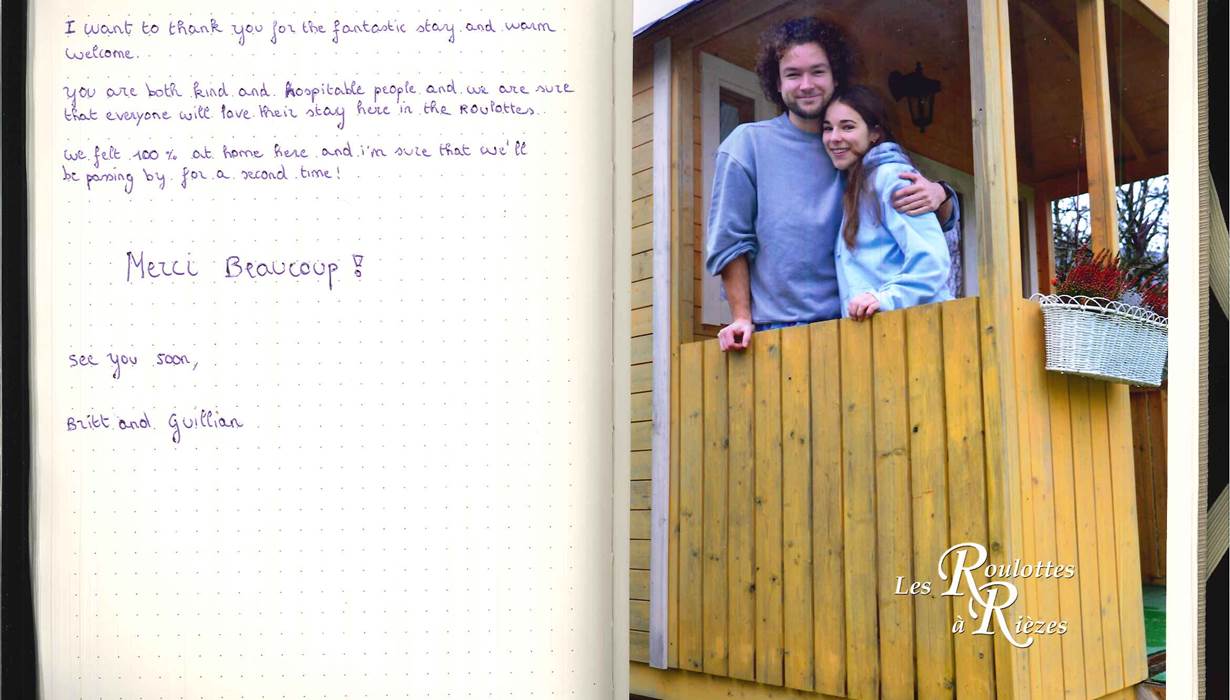 I want to thank you for the fantastic stay and warm
welcome.
you are both kind and hospitable people and we are sure
that everyone will love their stay here in the Roulottes.
we felt 100% at home here and i'm sure that we'll
be passing by for a second time!
Merci Beaucoup!
see you soon,
Britt and Guillian
Les Roulottes
à Rièzes